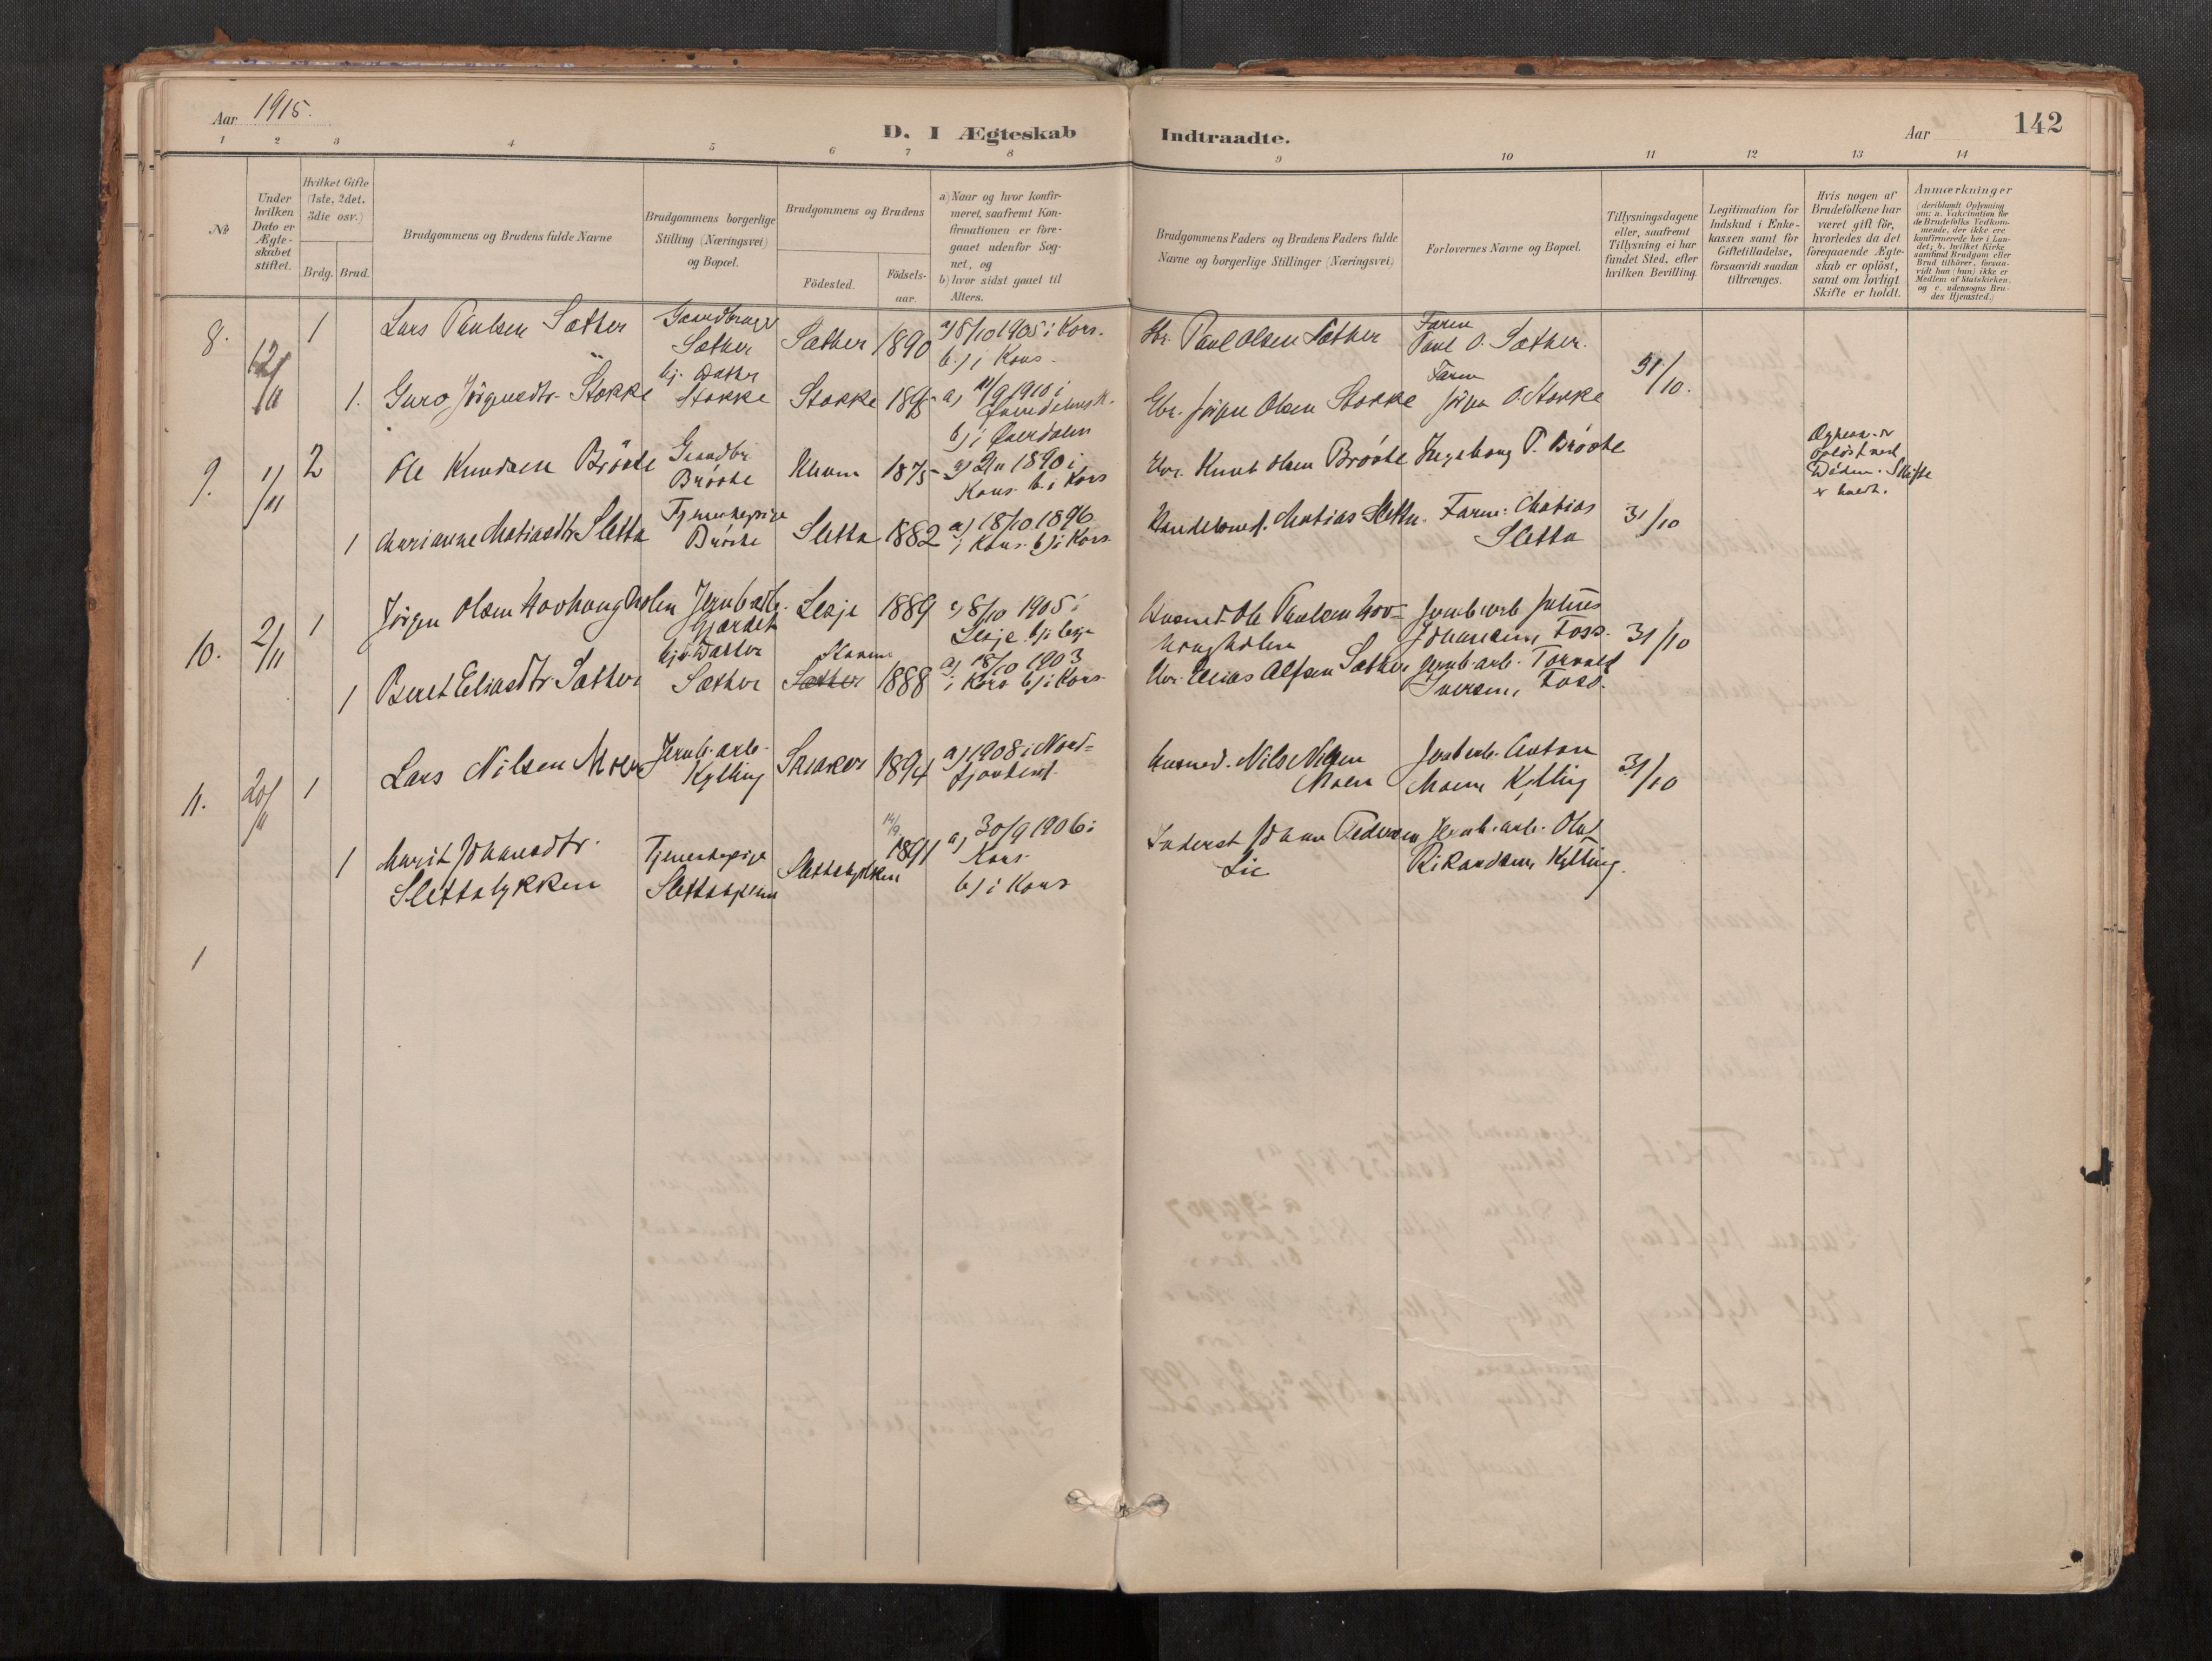 Aar 1915.
D. I Ægteskab
Indtraadte.
Aar
142
1 2 3 4 5 6 7 8 9 10 11 12 13 14
№
Under hvilken Dato er Ægte-skabet stiftet.
Hvilket Gifte (1ste, 2det, 3die osv.)
Brdg. Brud.
Brudgommens og Brudens fulde Navne
Brudgommens borgerlige Stilling (Næringsvei) og Bopæl.
Brudgommens og Brudens
Födested.
Födsels-aar.
a) Naar og hvor konfir-
meret, saafremt Kon-
firmationen er fore-
gaaet udenfor Sog-
net, og
b) hvor sidst gaaet til
Alters.
Brudgommens Faders og Brudens Faders fulde
Navne og borgerlige Stillinger (Næringsvei)
Forlovernes Navne og Bopæl.
Tillysningsdagene
eller, saafremt
Tillysning ei har
fundet Sted, efter
hvilken Bevilling.
Legitimation for
Indskud i Enke-
kassen samt for
Giftetilladelse,
forsaavidt saadan
tiltrænges.
Hvis nogen af
Brudefolkene har
været gift før,
hvorledes da det
foregaaende Ægte-
skab er oplöst,
samt om lovligt
Skifte er holdt.
Anmærkninger
(deriblandt Oplysning
om: a. Vakcination for
de Brudefolks Vedkom-
mende, der ikke ere
konfirmerede her i Lan-
det; b. hvilket Kirke
samfund Brudgom eller
Brud tilhörer, forsaa-
vidt han (hun) ikke er
Medlem af Statskirken,
og c. udensogns Bru-
des Hjemsted.)
8. 1 Lars Paulsen Sæther Gaardbruger Sæther Sæther 1890 a) 8/10 1905 i Kors. b.) i Kors. Gbr. Paul Olsen Sæther Faren Paul O. Sæther.
1. Guro Jörgensdtr. Stokke Stokke Stokke 1895 a) 11/9 1910 i b) i Øverdalen Gbr. Jörgen Olsen Stokke Faren Jörgen O. Stokke 31/10.
9. 1/11 2 Ole Knudsen Bröste Gaardbr Bröste 1875 1890 i Kors b. i Kors Gbr. Knut Olsen Bröste Ingeborg P. Bröste oplöst ved Döden. Skifte er holdt.
1 Marianne Matiasdtr. Sletta Tjenestepige Bröste Sletta 1882 a) 18/10 1896 i Kors b) i Kors Matias Sletta. Faren: Matias Sletta 31/10
10. 2/11 1 Jörgen Olsen Hovhaugholen Jernb.arb. Gjærdet Lesje 1889 a) 8/10 1905 i Lesje b) i Lesje Husmd. Ole Paulsen Hov-haugholen Jernb.arb. Johansen, Foss. 31/10
1 Beret Eliasdtr. Sæther hj.v. Datter Sæther Sæther 1888 a) 18/10 1903 i Kors b) i Kors Gbr. Elias Olsen Sæther Jernb.arb. Torvald Iversen, Foss.
11. 20/11 1 Lars Nilsen Moen Jernb.arb. Kylling 1894 a) 1908 i Nord-fjordeid. Husmd. Nils Nilsen Moen Jernb.arb. Anton Moen, Kylling 31/10
1 Marit Johansdtr. Slettalykken Tjenestepige Slettalykken Slettalykken 14/9. 1891 a) 30/9 1906 i Kors. b) i Kors Inderst Johan Pedersen Lie Jernb.arb. Olaf Rikardsen, Kylling.
1